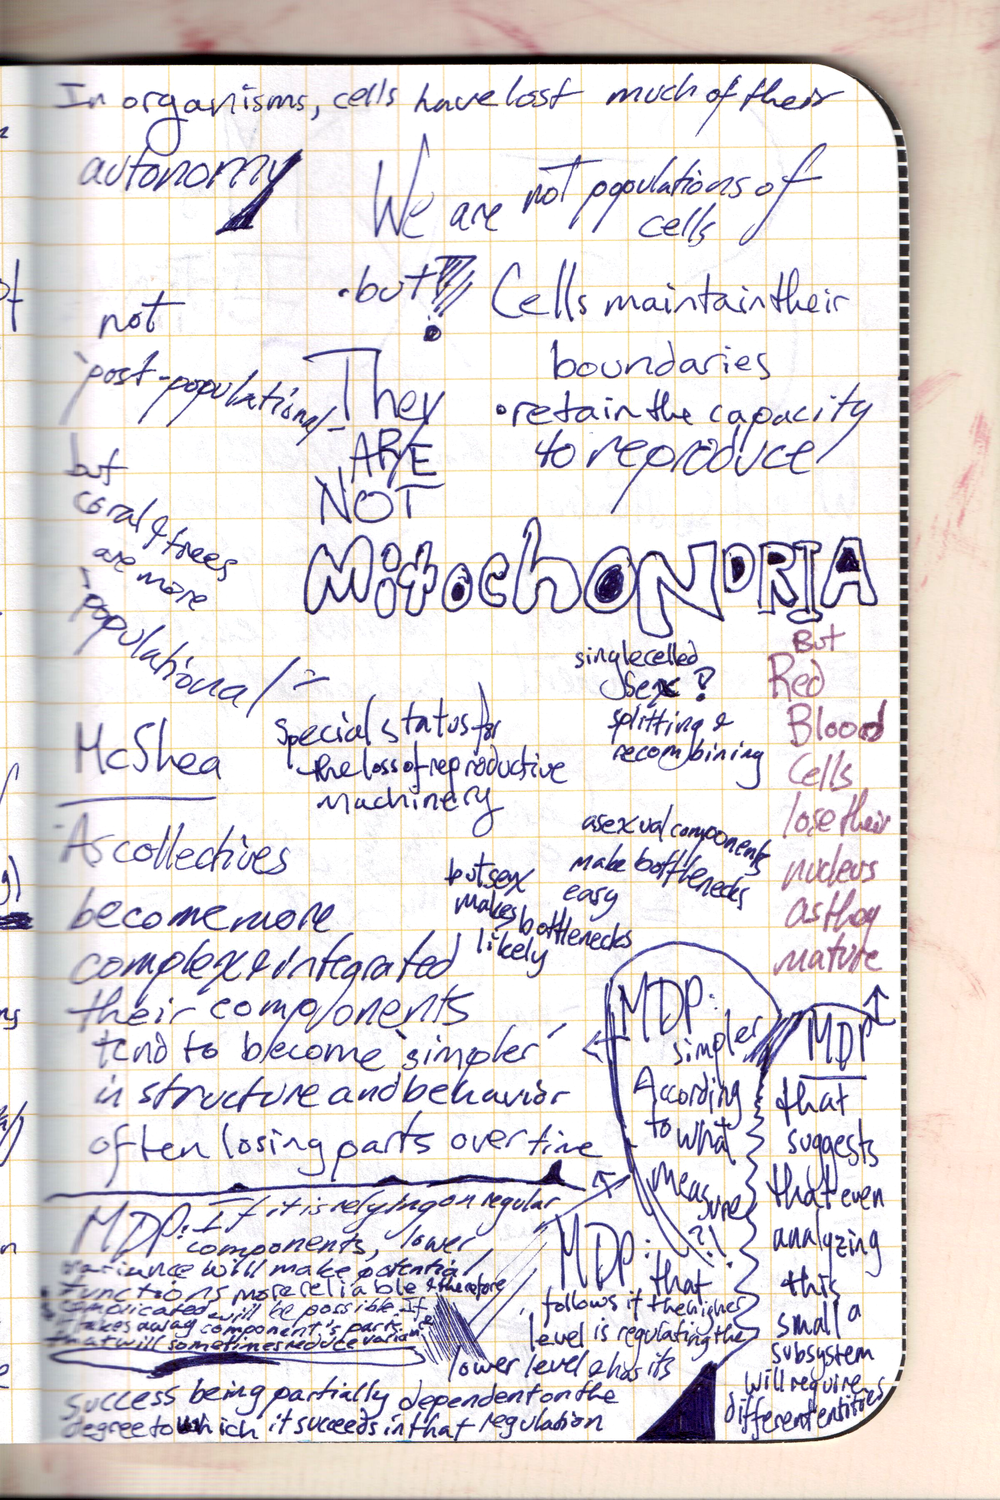 In organisms, cells have lost much of their
autonomy
We are not populations of
cells
·but!
Cells maintain their
boundaries
·retain the capacity
to reproduce
not
'post-populational'
They
ARE
NOT
MitochONDRIA
but
coral & trees
are more
'populational'
But
Red
Blood
Cells
lose their
nucleus
as they
mature
singlecelled
Sex?
splitting &
recombining
McShea
Special status for
the loss of reproductive
machinery
asexual components
make bottlenecks
easy
but sex
makes bottlenecks
likely
As collectives
become more
complex & integrated
their components
tend to become 'simpler'
in structure and behavior
often losing parts over time
MDP:
simpler
According
to what
measure
?!
MDP
that
suggests
that even
analyzing
this
small a
subsystem
will require
different entities
MDP: If it is relying on regular
components, lower
variance will make potential
functions more reliable & therefore
complicated will be possible. If
it takes away component's parts
that will sometimes reduce variance
MDP:
that
follows if the higher
level is regulating the
lower level & has its
success being partially dependent on the
degree to which it succeeds in that regulation